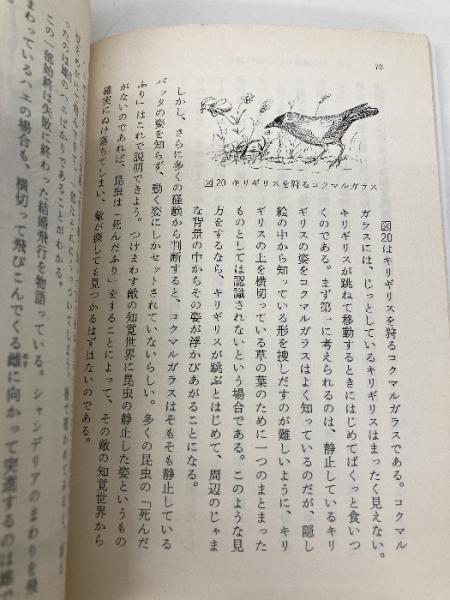 70
図20 キリギリスを狩るコクマルガラス
図20はキリギリスを狩るコクマルガラスである。コクマル
ガラスには、じっとしているキリギリスはまったく見えない。
キリギリスが跳ねて移動するときにはじめてぱくっと食いつ
くのである。まず第一に考えられるのは、静止しているキリ
ギリスの姿をコクマルガラスはよく知っているのだが、隠し
絵の中から知っている形を捜しだすのが難しいように、キリ
ギリスの上を横切っている草の葉のために一つのまとまった
ものとしては認識されないという場合である。このような見
方をするなら、キリギリスが跳ぶとはじめて、周辺のじゃま
な背景の中からその姿が浮かびあがることになる。
しかし、さらに多くの経験から判断すると、コクマルガラスはそもそも静止している
バッタの姿を知らず、動く姿にしかセットされていないらしい。多くの昆虫の「死んだ
ふり」はこれで説明できよう。つけまわす敵の知覚世界に昆虫の静止した姿というもの
がないのであれば、昆虫は「死んだふり」をすることによって、その敵の知覚世界から
確実にぬけ落ちてしまい、敵が捜しても見つかるはずはないのである。
ったのは雄のハエばかりであることがわかる。
この一部始終は失敗に終わった結婚飛行を物語っている。シャンデリアのまわりを飛
まわっているハエの場合も、横切って飛びこんでくる雌に向かって突進するのは雄で